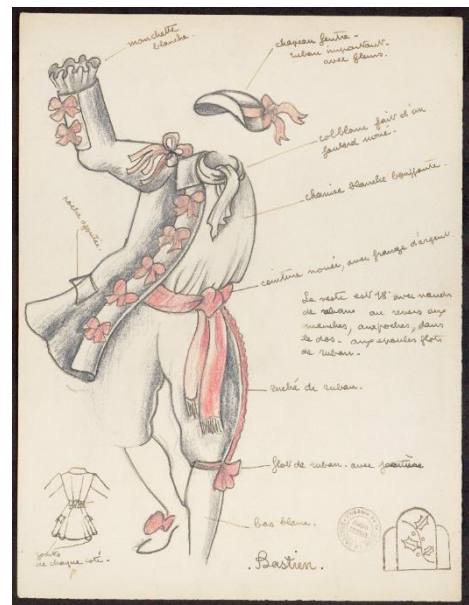 manchette
blanche.
chapeau feutre.
ruban important.
avec fleurs.
col blanc fait d'un
foulard noué.
chemise blanche bouffante.
poche ajoutée.
ceinture nouée, avec frange d'argent.
La veste est 18e avec nœuds
de rubans au revers aux
manches, aux poches, dans
le dos. aux épaules flots
de ruban.
ruché de ruban.
flot de ruban. avec jarretière
bas blanc.
de chaque coté.
Bastien.